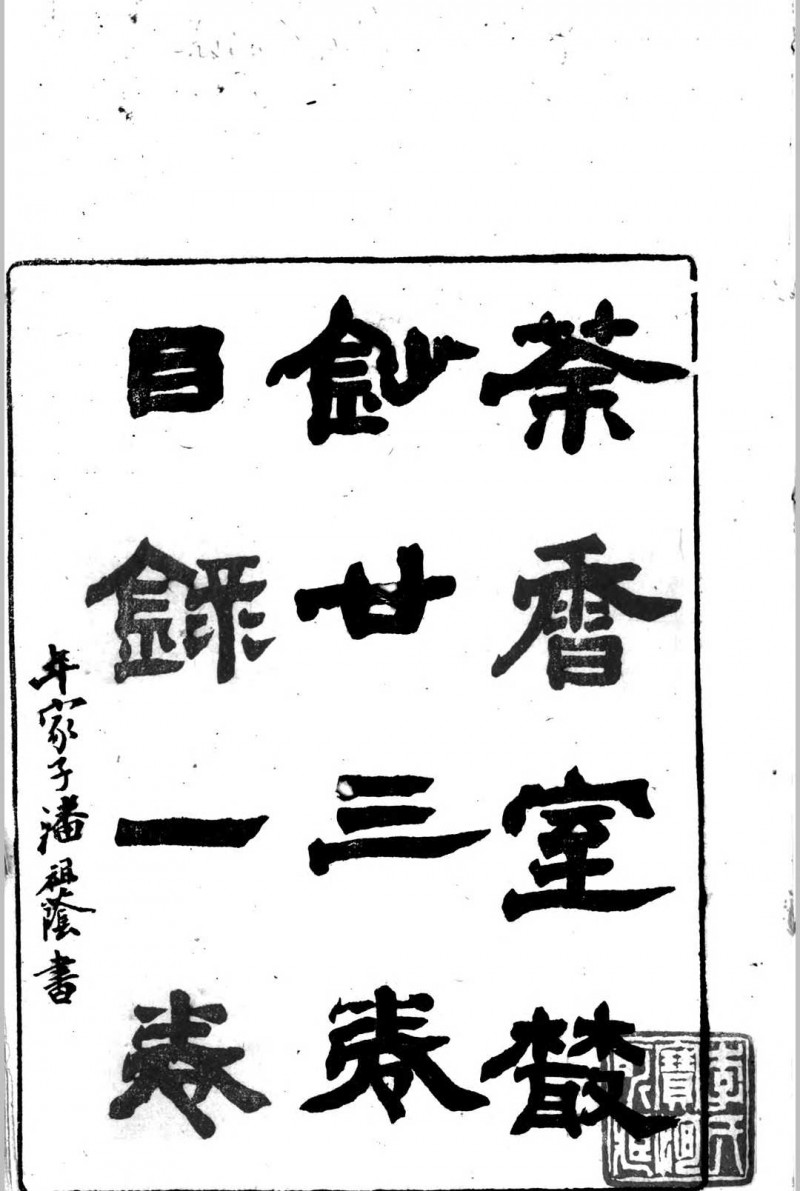 茶香室叢
鈔廿三卷
目錄一卷
年家子潘祖蔭書
李氏
寶